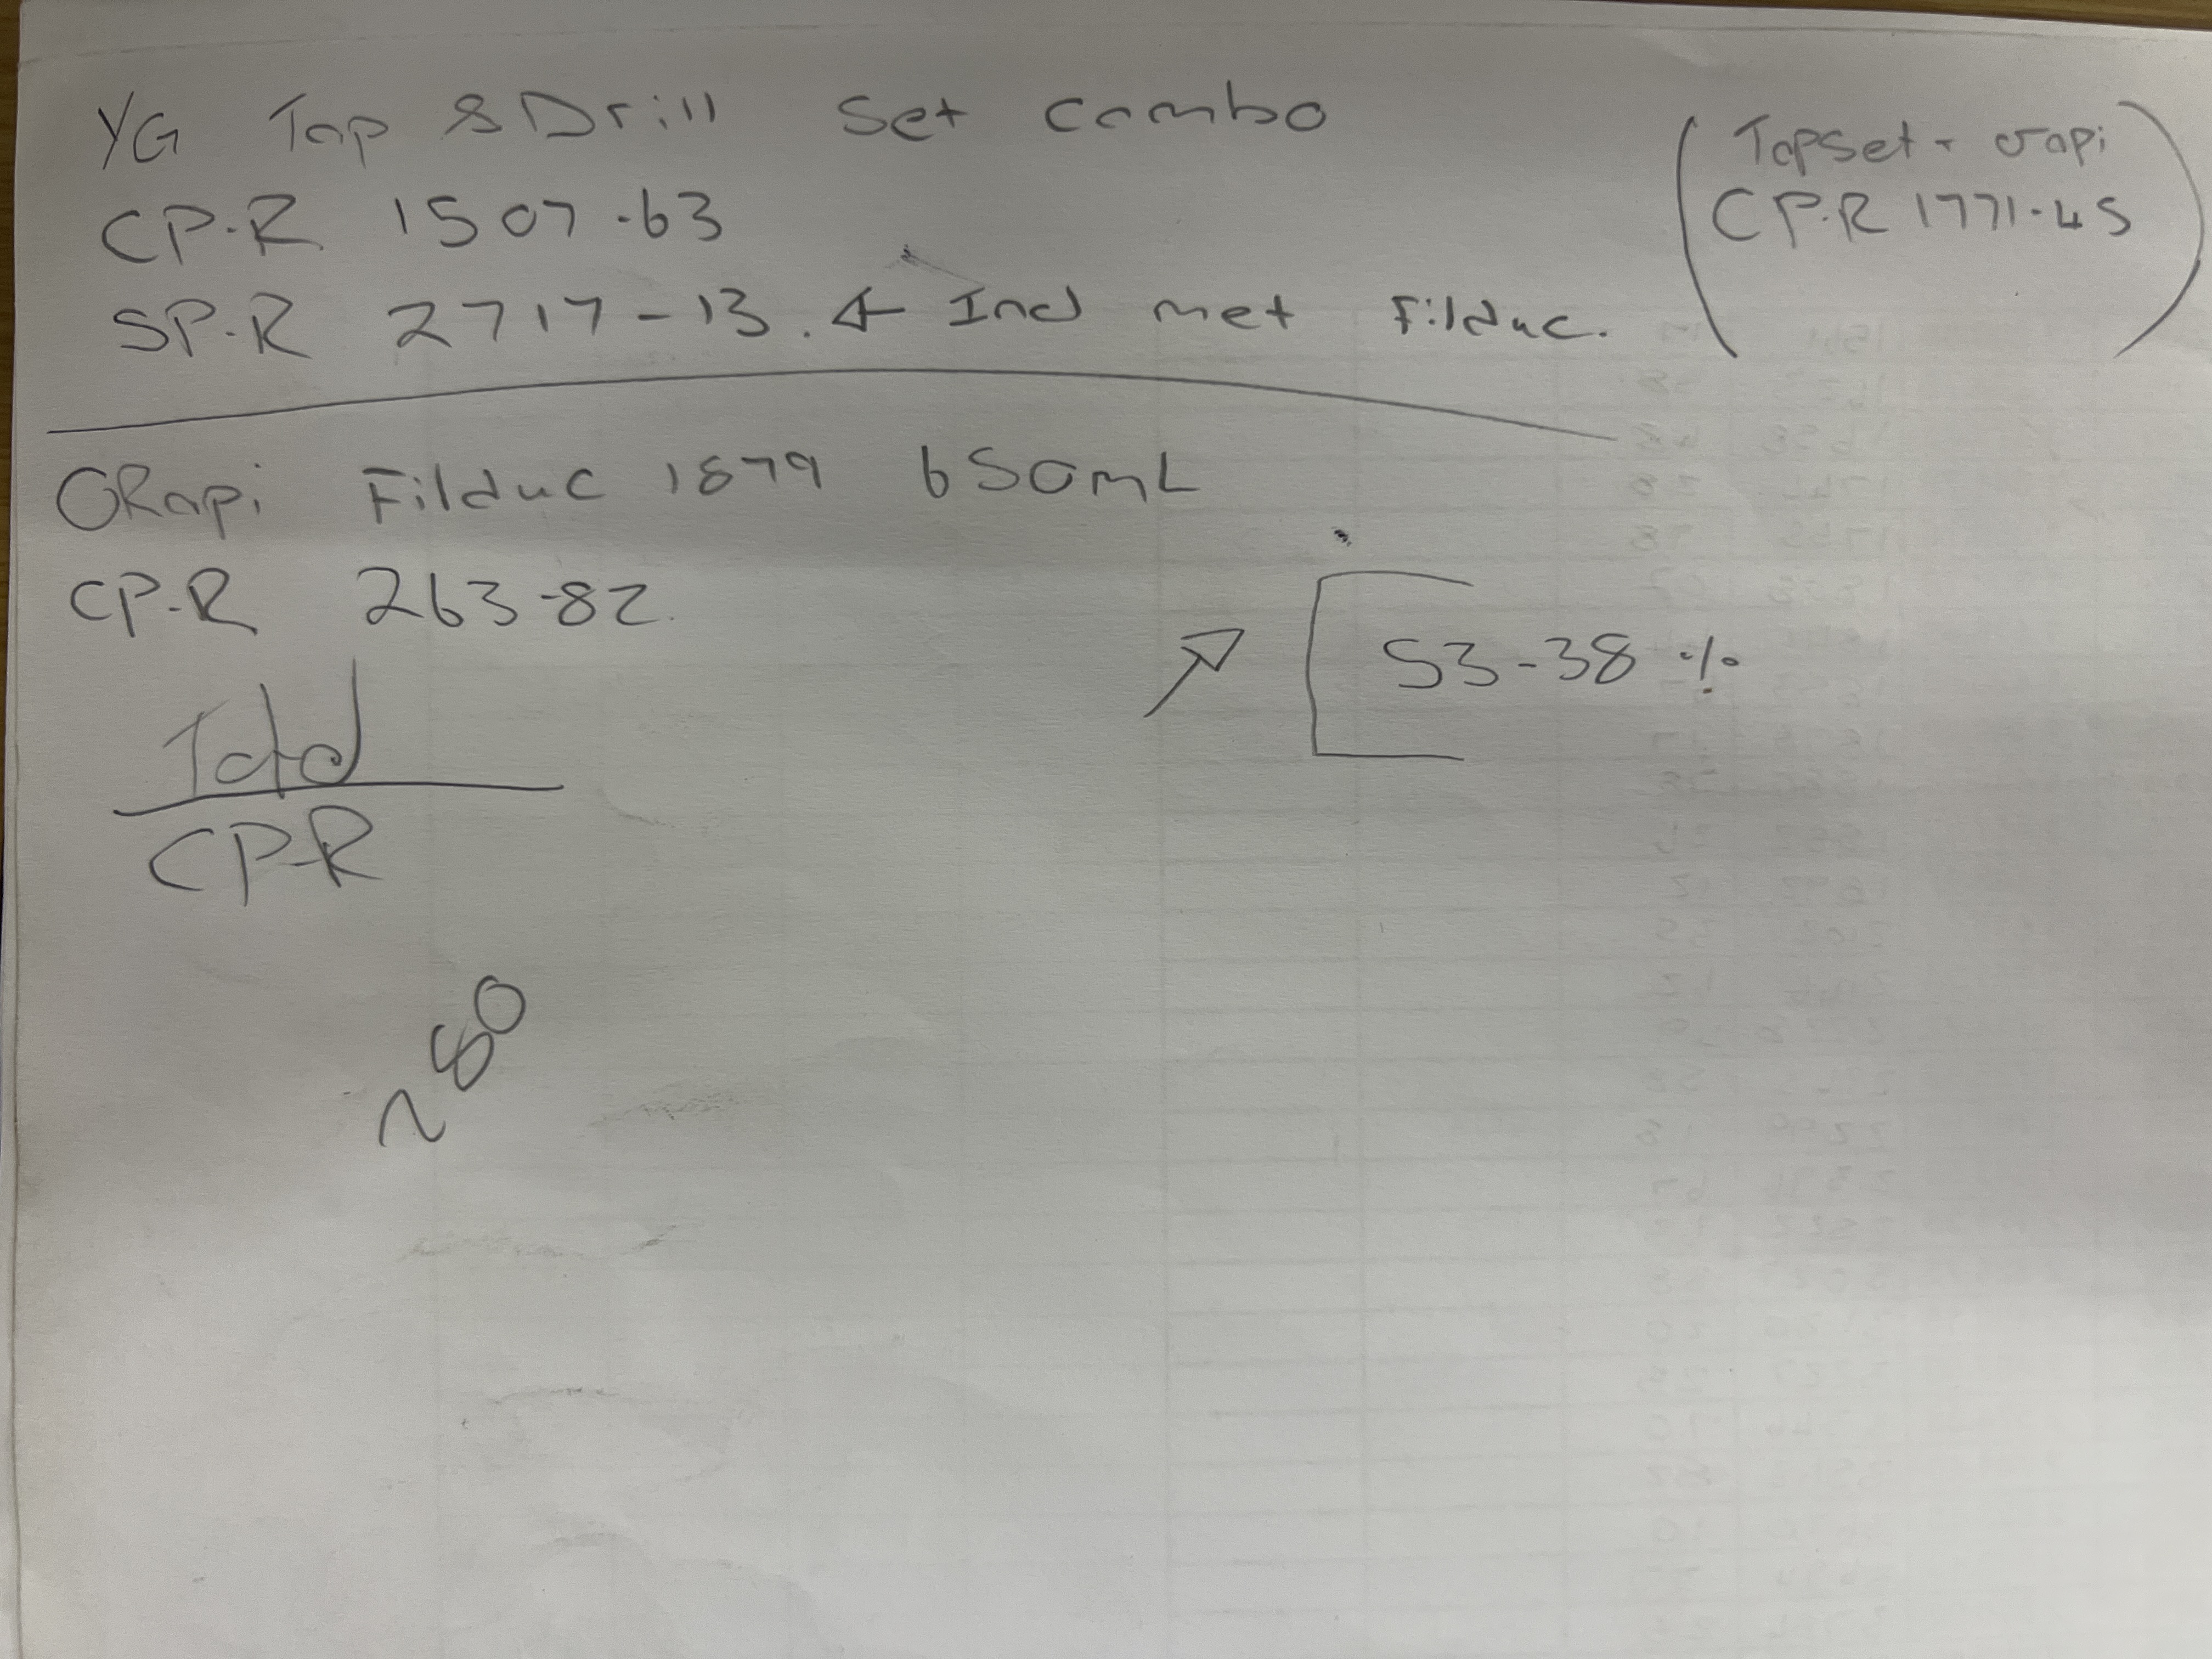 YG Tap & Drill Set Combo
CP.R 1507-63
SP.R 2717-13.4 Incl met Filduc.
(Tapset + Grapi
CP.R 1771-45)
GRapi Filduc 1879 650mL
CP.R 263-82
53-38 %
Total
CP-R
280